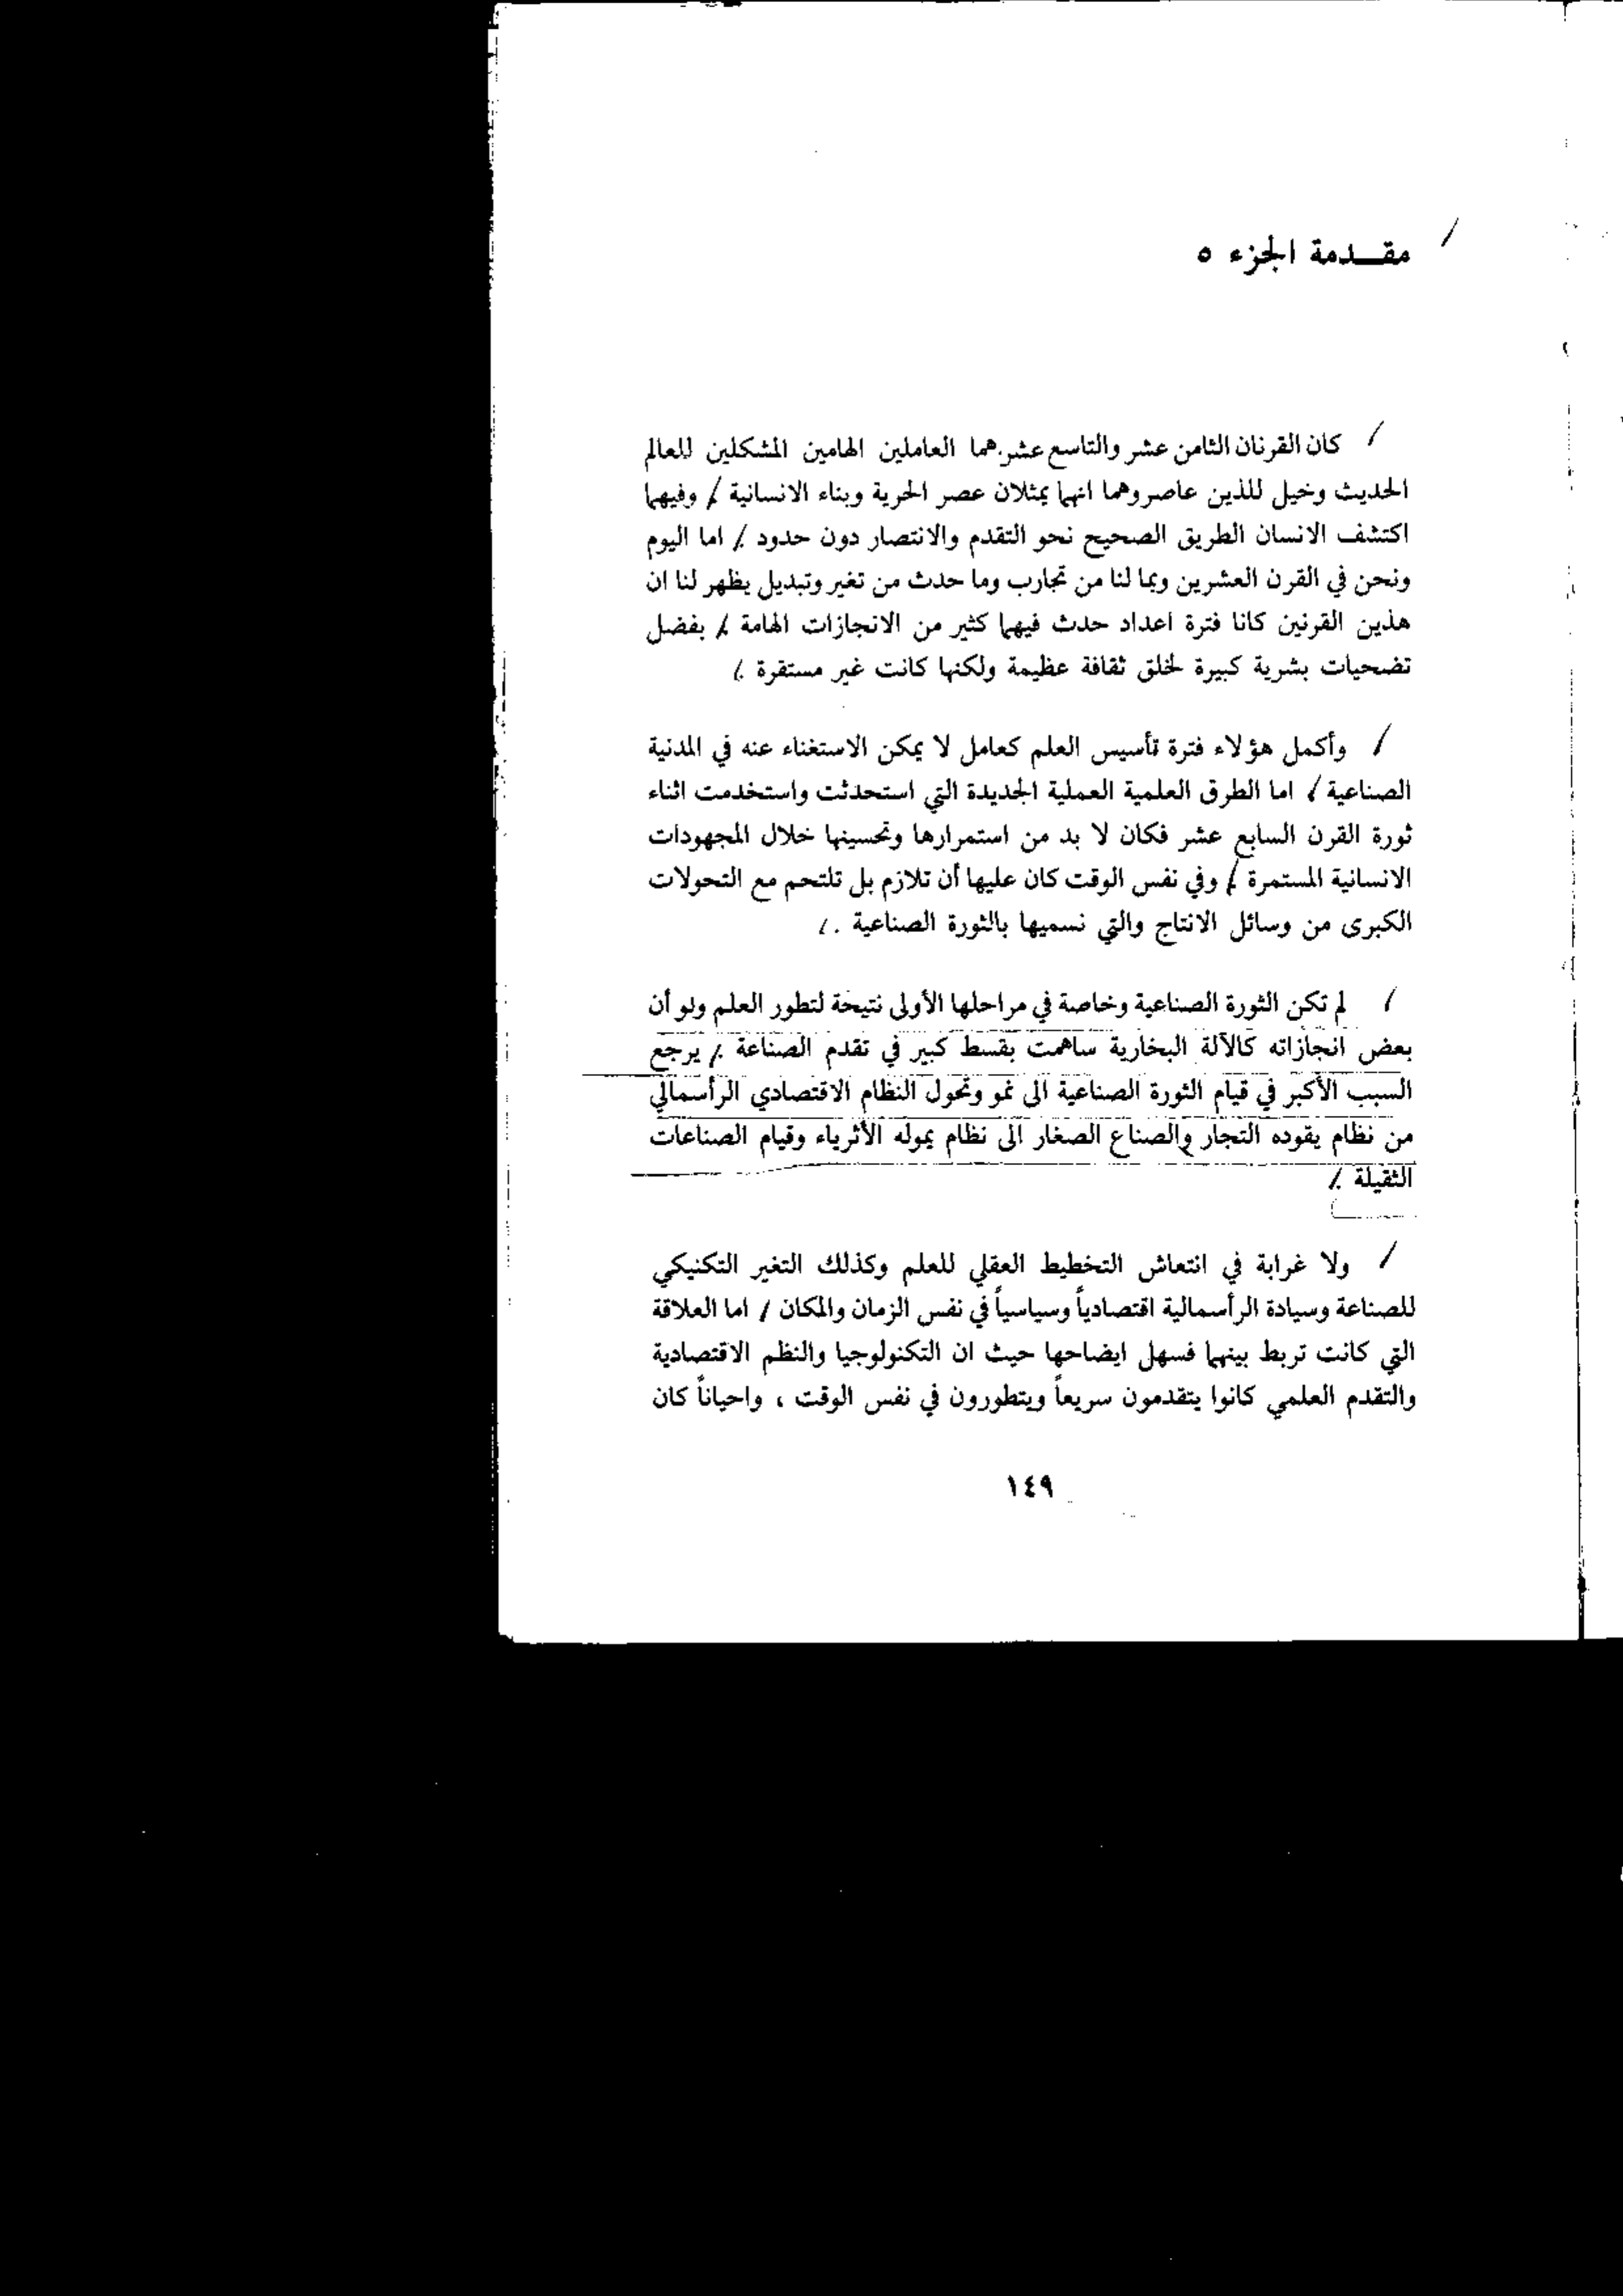 مقـدمة الجزء ٥
كان القرنان الثامن عشر والتاسع عشر هما العاملين الهامين المشكلين للعالم
الحديث وخيل للذين عاصروهما انهما يمثلان عصر الحرية وبناء الانسانية / وفيهما
اكتشف الانسان الطريق الصحيح نحو التقدم والانتصار دون حدود ./ اما اليوم
ونحن في القرن العشرين وبما لنا من تجارب وما حدث من تغير وتبديل يظهر لنا ان
هذين القرنين كانا فترة اعداد حدث فيهما كثير من الانجازات الهامة ./ بفضل
تضحيات بشرية كبيرة لخلق ثقافة عظيمة ولكنها كانت غير مستقرة ./
/ وأكمل هؤلاء فترة تأسيس العلم كعامل لا يمكن الاستغناء عنه في المدنية
الصناعية / اما الطرق العلمية العملية الجديدة التي استحدثت واستخدمت اثناء
ثورة القرن السابع عشر فكان لا بد من استمرارها وتحسينها خلال المجهودات
الانسانية المستمرة / وفي نفس الوقت كان عليها أن تلازم بل تلتحم مع التحولات
الكبرى من وسائل الانتاج والتي نسميها بالثورة الصناعية ./
/ لم تكن الثورة الصناعية وخاصة في مراحلها الأولى نتيجة لتطور العلم ولو أن
بعض انجازاته كالآلة البخارية ساهمت بقسط كبير في تقدم الصناعة ./ يرجع
السبب الأكبر في قيام الثورة الصناعية الى نمو وتحول النظام الاقتصادي الرأسمالي
من نظام يقوده التجار والصناع الصغار الى نظام يموله الأثرياء وقيام الصناعات
الثقيلة ./
/ ولا غرابة في انتعاش التخطيط العقلي للعلم وكذلك التغير التكنيكي
للصناعة وسيادة الرأسمالية اقتصادياً وسياسياً في نفس الزمان والمكان / اما العلاقة
التي كانت تربط بينهما فسهل ايضاحها حيث ان التكنولوجيا والنظم الاقتصادية
والتقدم العلمي كانوا يتقدمون سريعاً ويتطورون في نفس الوقت ، واحياناً كان
١٤٩